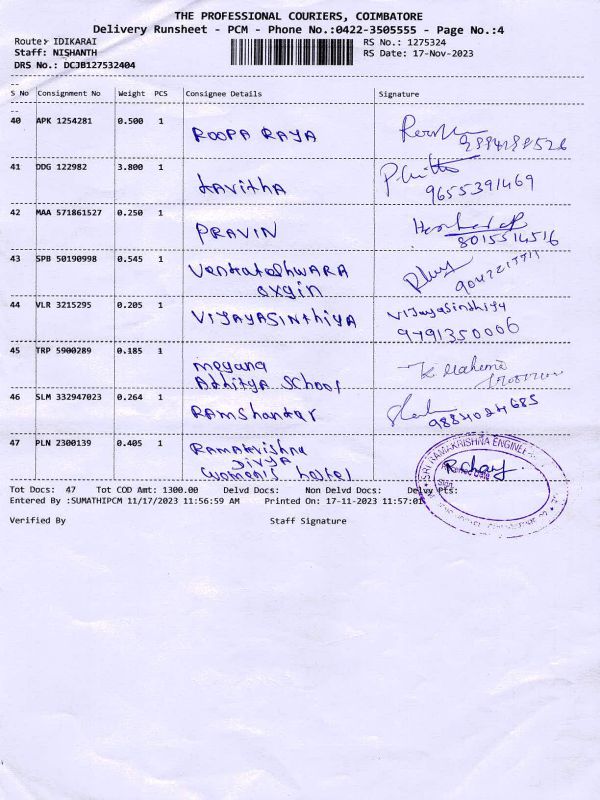 THE PROFESSIONAL COURIERS, COIMBATORE
Delivery Runsheet - PCM - Phone No.:0422-3505555 - Page No.:4
Route: IDIKARAI RS No.: 1275324
Staff: NISHANTH RS Date: 17-Nov-2023
DRS No.: DCJB127532404
S No Consignment No Weight PCS Consignee Details Signature
40 APK 1254281 0.500 1 ROOPA RAYA
9884188526
41 DDG 122982 3.800 1 kavitha
9655391469
42 MAA 571861527 0.250 1 PRAVIN
8015514516
43 SPB 50190998 0.545 1 Venkateshwara
oxgin
44 VLR 3215295 0.205 1 VIJAYASINthiYA VIJayaSinthiya
9791350006
45 TRP 5900289 0.185 1 meyana
Adhitya School
46 SLM 332947023 0.264 1 Ramshankar
9884024685
47 PLN 2300139 0.405 1 Ramakrishna
Women's hostel
SRI RAMAKRISHNA ENGINE
Tot Docs: 47 Tot COD Amt: 1300.00 Delvd Docs: Non Delvd Docs: Delvy Pts:
Entered By :SUMATHIPCM 11/17/2023 11:56:59 AM Printed On: 17-11-2023 11:57:01
Verified By Staff Signature